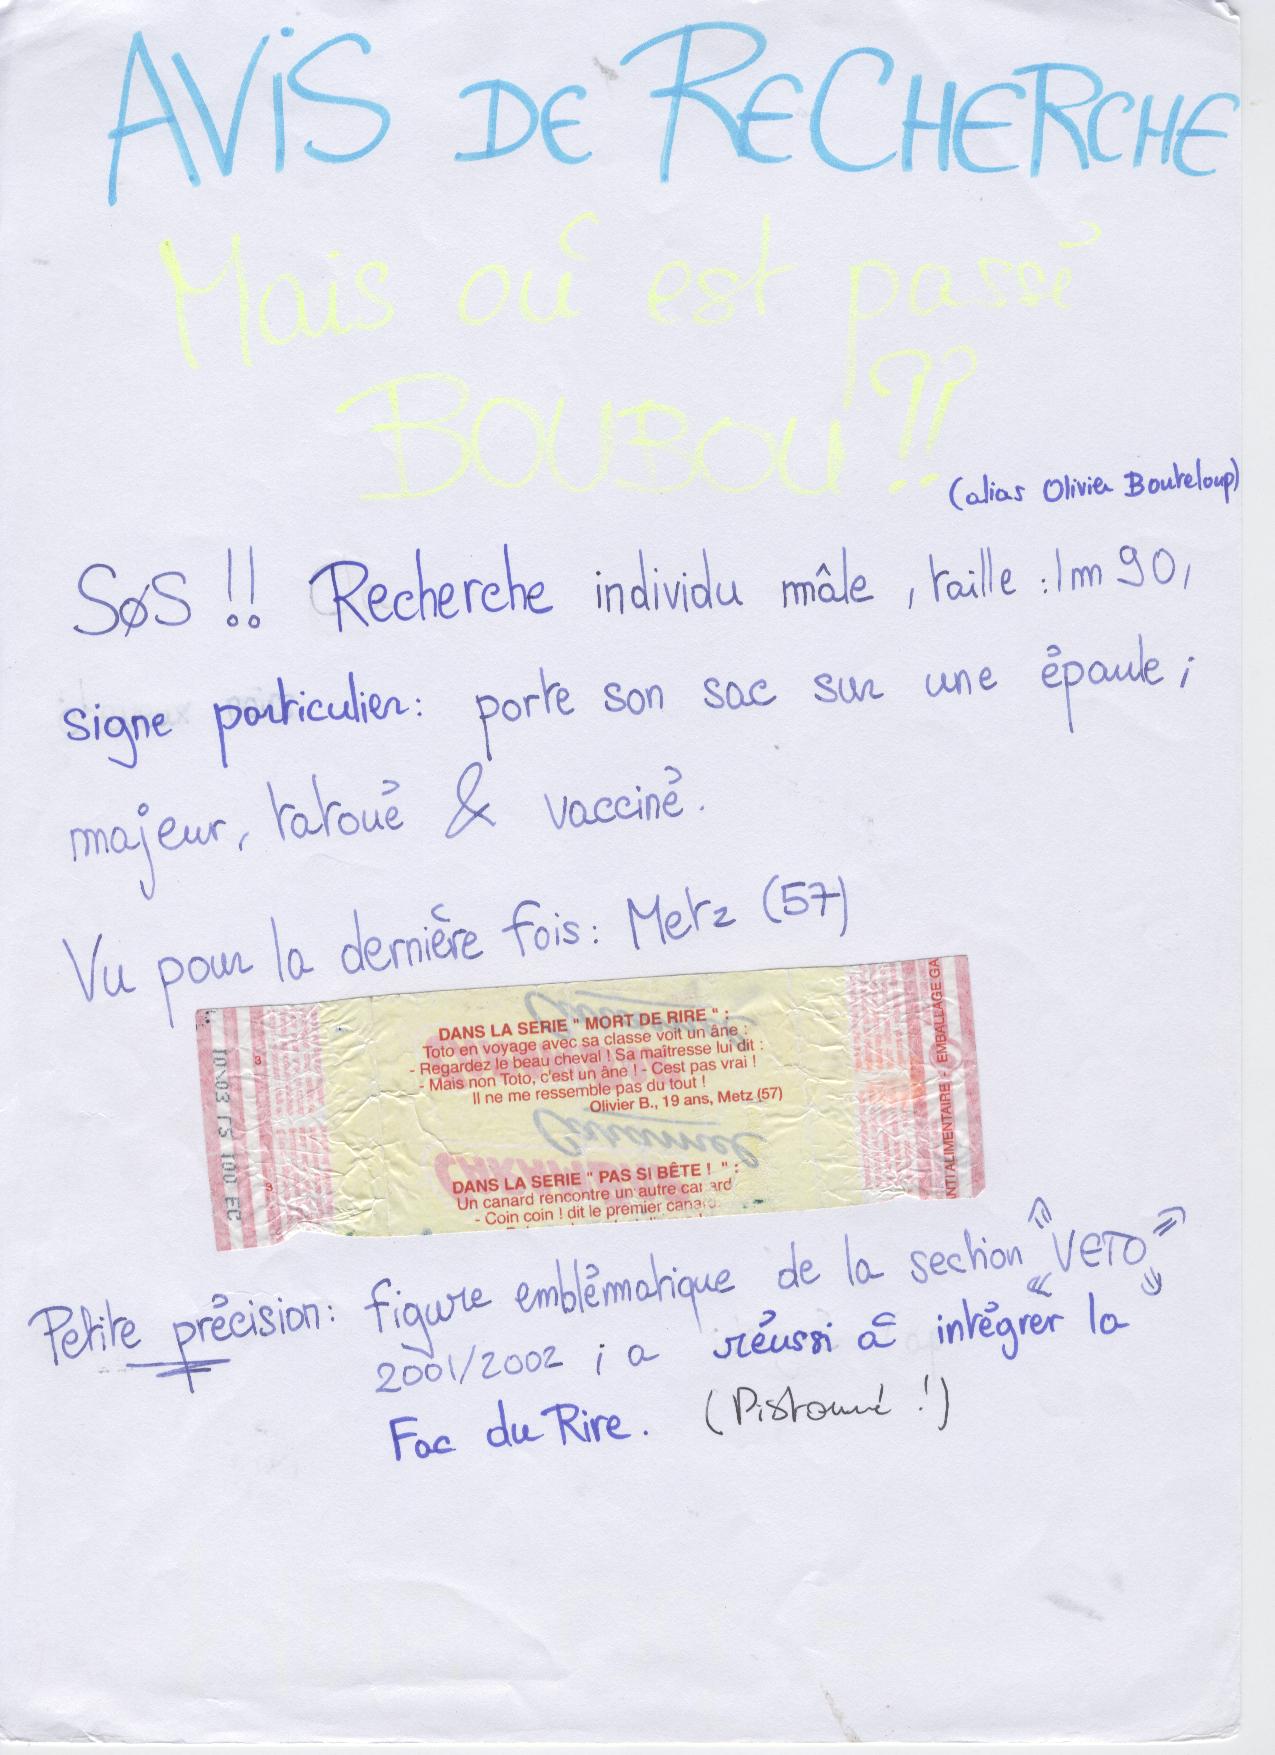 AVIS DE RECHERCHE
Mais où est passé
BOUBOU ??
(alias Olivier Bouteloup)
SOS !! Recherche individu mâle, taille : 1m 90,
signe particulier : porte son sac sur une épaule ;
majeur, tatoué & vacciné.
Vu pour la dernière fois : Metz (57)
DANS LA SERIE " MORT DE RIRE " :
Toto en voyage avec sa classe voit un âne :
- Regardez le beau cheval ! Sa maîtresse lui dit :
- Mais non Toto, c'est un âne ! - Cest pas vrai !
Il ne me ressemble pas du tout !
Olivier B., 19 ans, Metz (57)
Caramel
DANS LA SERIE " PAS SI BÊTE ! " :
Un canard rencontre un autre canard
- Coin coin ! dit le premier canard.
10/03 L5 100 EC
3
3
ANTI ALIMENTAIRE - EMBALLAGE GA
Petite précision : figure emblématique de la section "VETO"
2001/2002 ; a réussi à intégrer la
Fac du Rire. (Pistonné !)